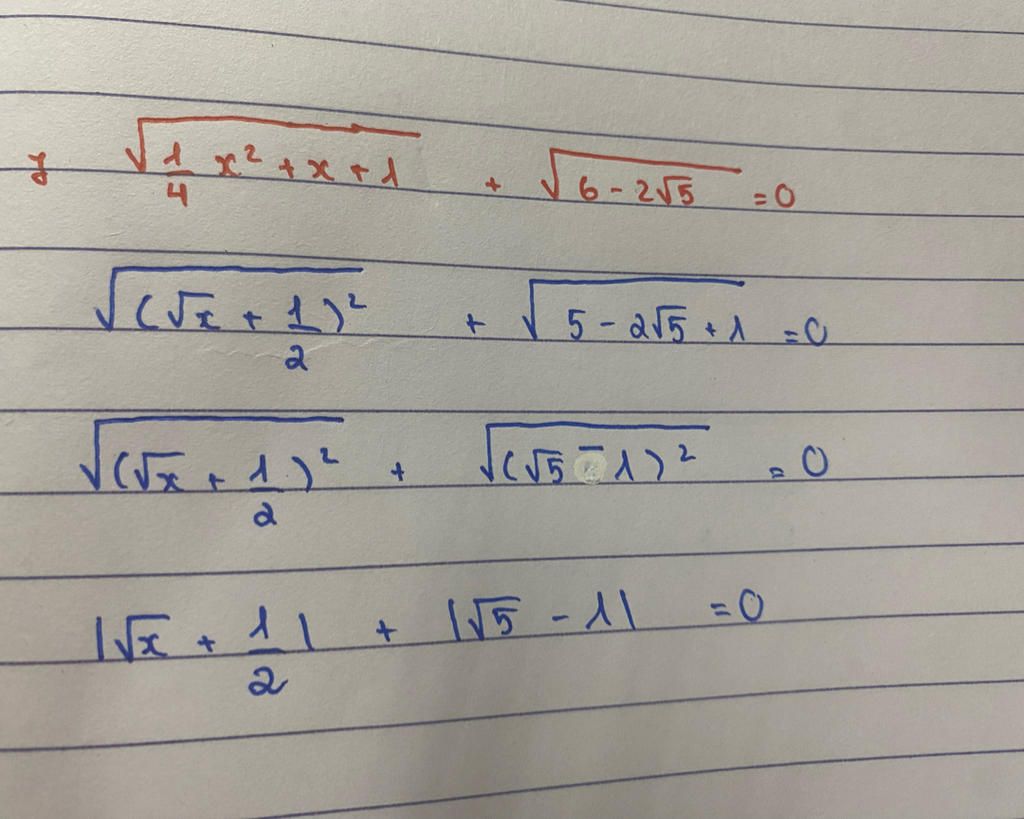 y √(1/4 x² + x + 1) + √(6 - 2√5) = 0
√((√x + 1/2)²) + √(5 - 2√5 + 1) = 0
√((√x + 1/2)²) + √((√5 - 1)²) = 0
|√x + 1/2| + |√5 - 1| = 0